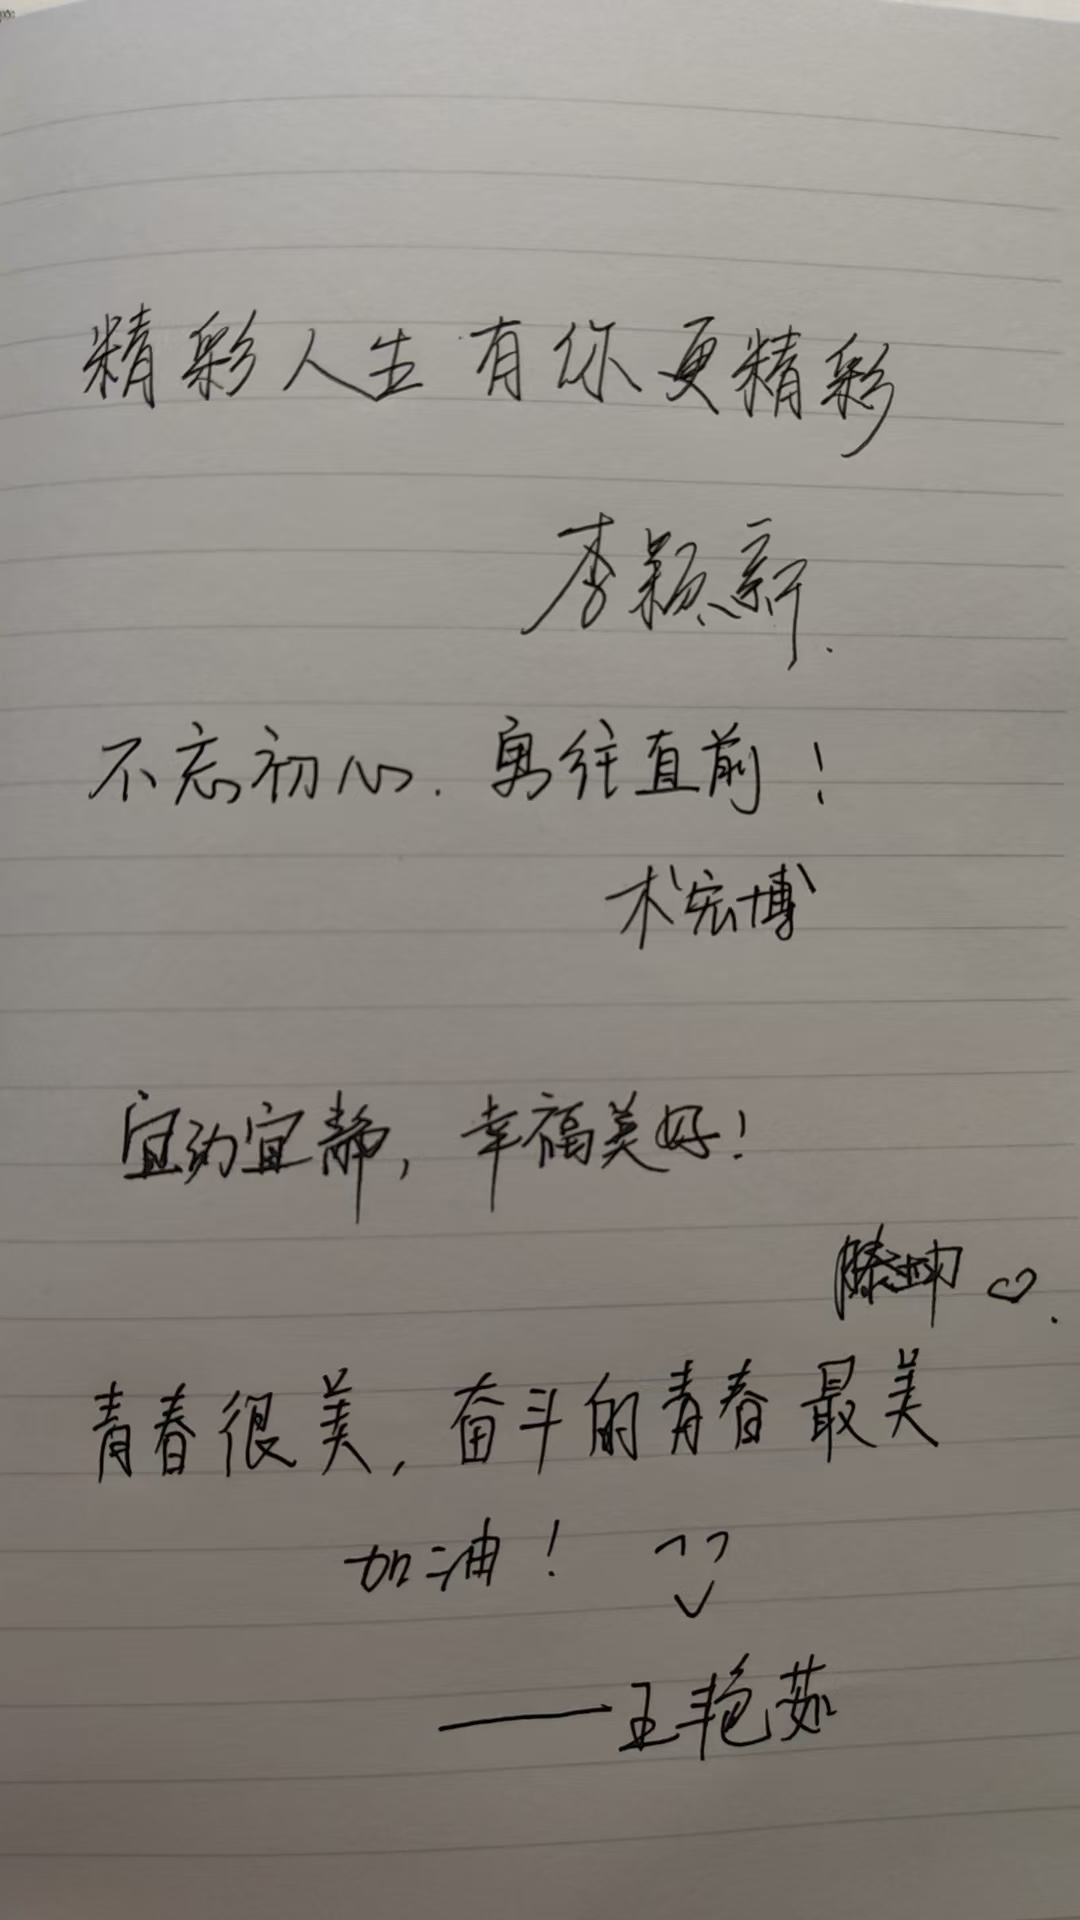 精彩人生 有你更精彩
李颖新.
不忘初心. 勇往直前！
术宏博
宜动宜静，幸福美好！
滕坤 ♡.
青春很美，奋斗的青春最美
加油！
——王艳茹